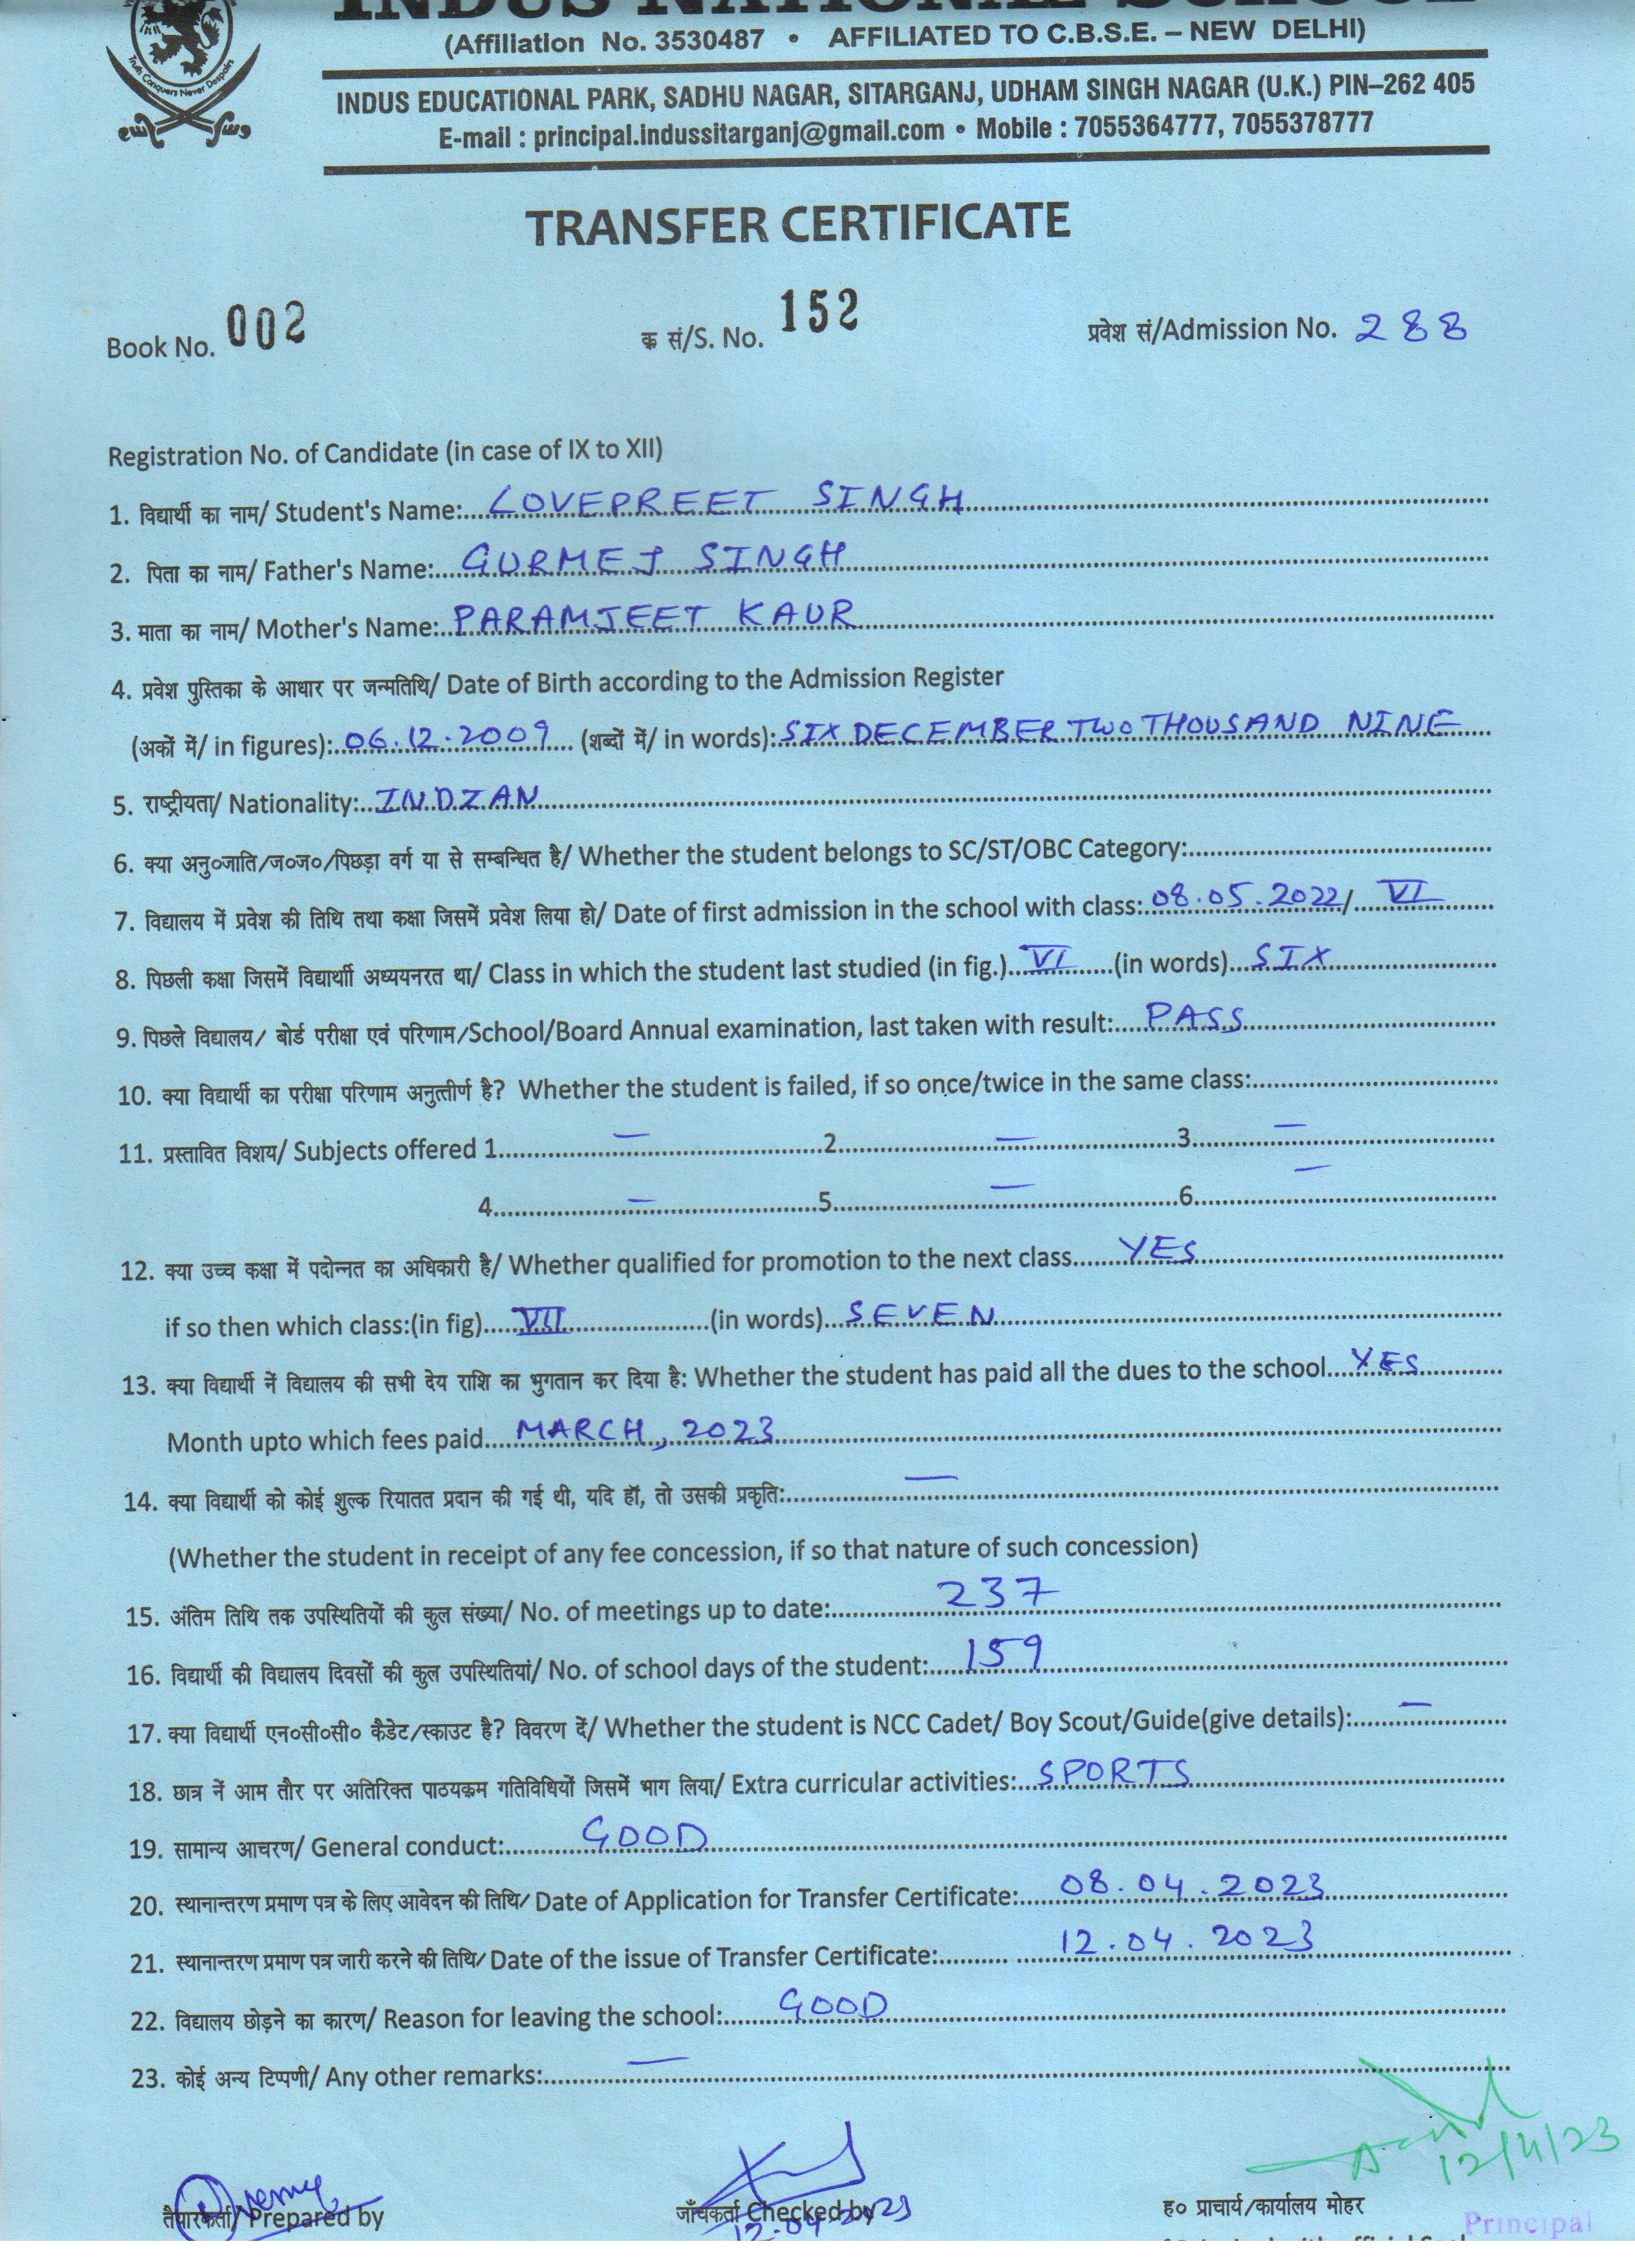 INDUS NATIONAL SCHOOL
(Affiliation No. 3530487 • AFFILIATED TO C.B.S.E. – NEW DELHI)
Truth Conquers Never Despairs
INDUS EDUCATIONAL PARK, SADHU NAGAR, SITARGANJ, UDHAM SINGH NAGAR (U.K.) PIN–262 405
E-mail : principal.indussitarganj@gmail.com • Mobile : 7055364777, 7055378777
TRANSFER CERTIFICATE
Book No. 002 क्र सं/S. No. 152 प्रवेश सं/Admission No. 288
Registration No. of Candidate (in case of IX to XII)
1. विद्यार्थी का नाम/ Student's Name: LOVEPREET SINGH
2. पिता का नाम/ Father's Name: GURMEJ SINGH
3. माता का नाम/ Mother's Name: PARAMJEET KAUR
4. प्रवेश पुस्तिका के आधार पर जन्मतिथि/ Date of Birth according to the Admission Register
(अकों में/ in figures): 06.12.2009 (शब्दों में/ in words): SIX DECEMBER TWO THOUSAND NINE
5. राष्ट्रीयता/ Nationality: INDIAN
6. क्या अनु०जाति/ज०ज०/पिछड़ा वर्ग या से सम्बन्धित है/ Whether the student belongs to SC/ST/OBC Category:
7. विद्यालय में प्रवेश की तिथि तथा कक्षा जिसमें प्रवेश लिया हो/ Date of first admission in the school with class: 08.05.2022/ VI
8. पिछली कक्षा जिसमें विद्यार्थी अध्ययनरत था/ Class in which the student last studied (in fig.) VI (in words) SIX
9. पिछले विद्यालय/ बोर्ड परीक्षा एवं परिणाम/School/Board Annual examination, last taken with result: PASS
10. क्या विद्यार्थी का परीक्षा परिणाम अनुत्तीर्ण है? Whether the student is failed, if so once/twice in the same class:
11. प्रस्तावित विशय/ Subjects offered 1. — 2. — 3. —
4. — 5. — 6. —
12. क्या उच्च कक्षा में पदोन्नत का अधिकारी है/ Whether qualified for promotion to the next class YES
if so then which class:(in fig) VII (in words) SEVEN
13. क्या विद्यार्थी नें विद्यालय की सभी देय राशि का भुगतान कर दिया है: Whether the student has paid all the dues to the school YES
Month upto which fees paid MARCH, 2023
14. क्या विद्यार्थी को कोई शुल्क रियातत प्रदान की गई थी, यदि हॉ, तो उसकी प्रकृति: —
(Whether the student in receipt of any fee concession, if so that nature of such concession)
15. अंतिम तिथि तक उपस्थितियों की कुल संख्या/ No. of meetings up to date: 237
16. विद्यार्थी की विद्यालय दिवसों की कुल उपस्थितियां/ No. of school days of the student: 159
17. क्या विद्यार्थी एन०सी०सी० कैडेट/स्काउट है? विवरण दें/ Whether the student is NCC Cadet/ Boy Scout/Guide(give details): —
18. छात्र नें आम तौर पर अतिरिक्त पाठयक्रम गतिविधियों जिसमें भाग लिया/ Extra curricular activities: SPORTS
19. सामान्य आचरण/ General conduct: GOOD
20. स्थानान्तरण प्रमाण पत्र के लिए आवेदन की तिथि/ Date of Application for Transfer Certificate: 08.04.2023
21. स्थानान्तरण प्रमाण पत्र जारी करने की तिथि/ Date of the issue of Transfer Certificate: 12.04.2023
22. विद्यालय छोड़ने का कारण/ Reason for leaving the school: GOOD
23. कोई अन्य टिप्पणी/ Any other remarks: —
12/4/23
तैयारकर्ता/ Prepared by जाँचकर्ता Checked by ह० प्राचार्य/कार्यालय मोहर
12.04.2023 Principal